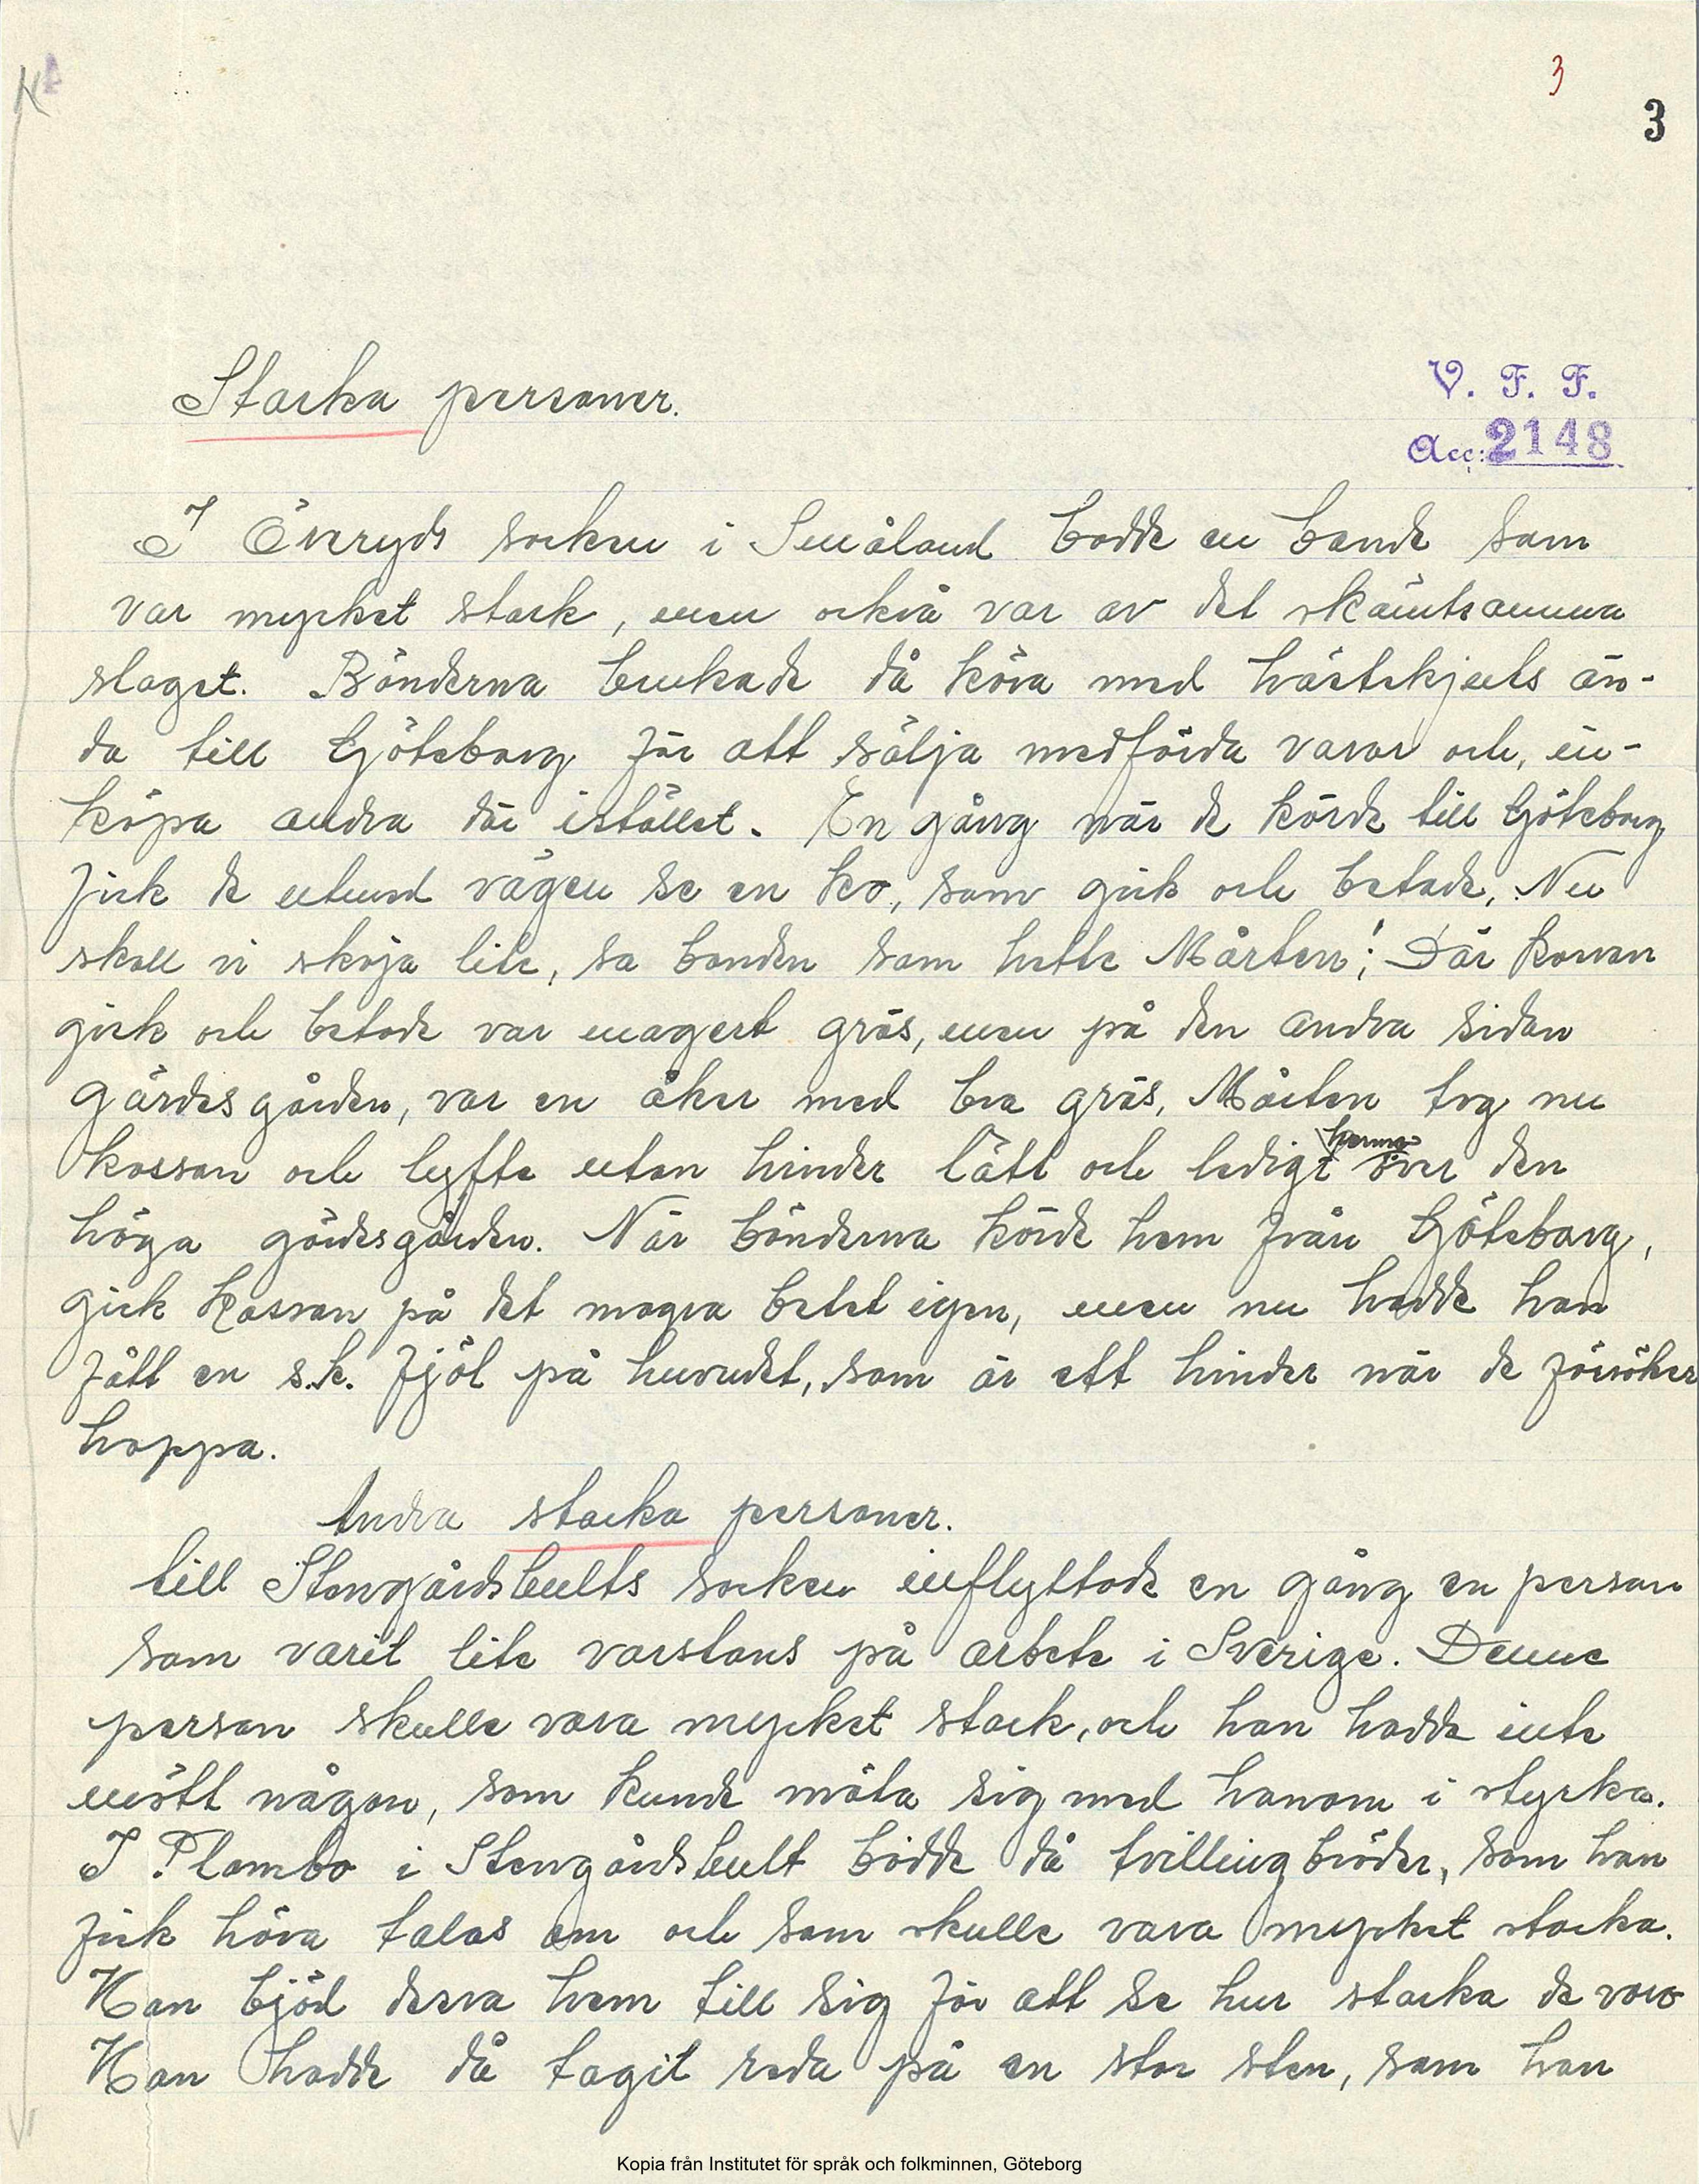 3
3
Starka personer.
V. F. F.
Acc: 2148
I Överyds socken i Småland bodde en bonde som
var mycket stark, men också var av det skämtsamma
slaget. Bönderna brukade då köra med hästskjuts än-
da till Göteborg för att sälja medförda varor och, in-
köpa andra där istället. En gång när de körde till Göteborg
fick de utmed vägen se en ko, som gick och betade. Nu
skall vi skoja lite, sa bonden som hette Mårten! Där kossan
gick och betade var magert gräs, men på den andra sidan
gärdesgården, var en åker med bra gräs. Mårten tog nu
kossan och lyfte utan hinder lätt och ledigt henne över den
höga gärdesgården. När bönderna körde hem från Göteborg,
gick kossan på det magra betet igen, men nu hadde hon
fått en s.k. fjöl på huvudet, som är ett hinder när de försöker
hoppa.
Andra starka personer.
till Stengårdshults socken inflyttade en gång en person
som varit lite varstans på arbete i Sverige. Denne
person skulle vara mycket stark, och han hadde inte
mött någon, som kunde mäta sig med honom i styrka.
I Flambo i Stengårdshult bodde då tvillingbröder, som han
fick höra talas om och som skulle vara mycket starka.
Han bjöd dessa hem till sig för att se hur starka de voro
Han hadde då tagit reda på en stor sten, som han
Kopia från Institutet för språk och folkminnen, Göteborg